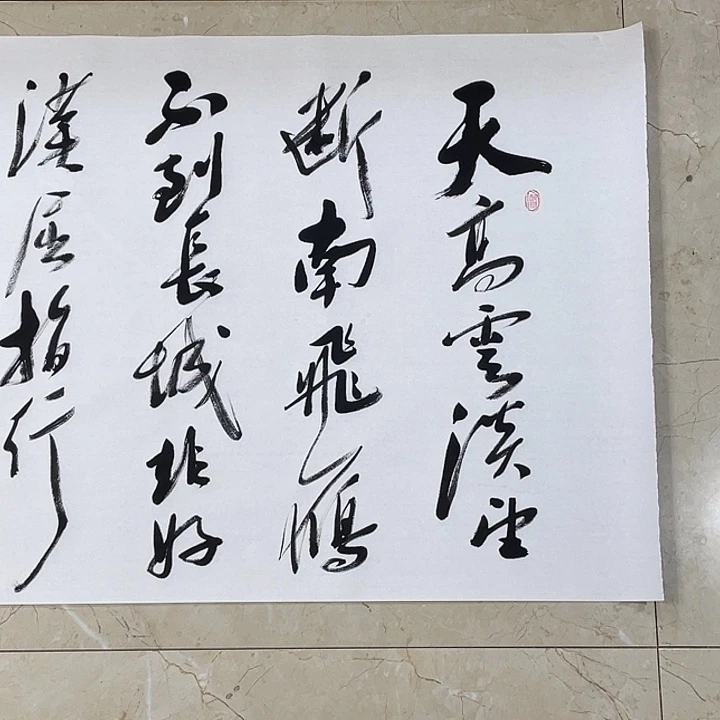 天高雲淡望
断南飛鴈
不到長城非好
漢屈指行